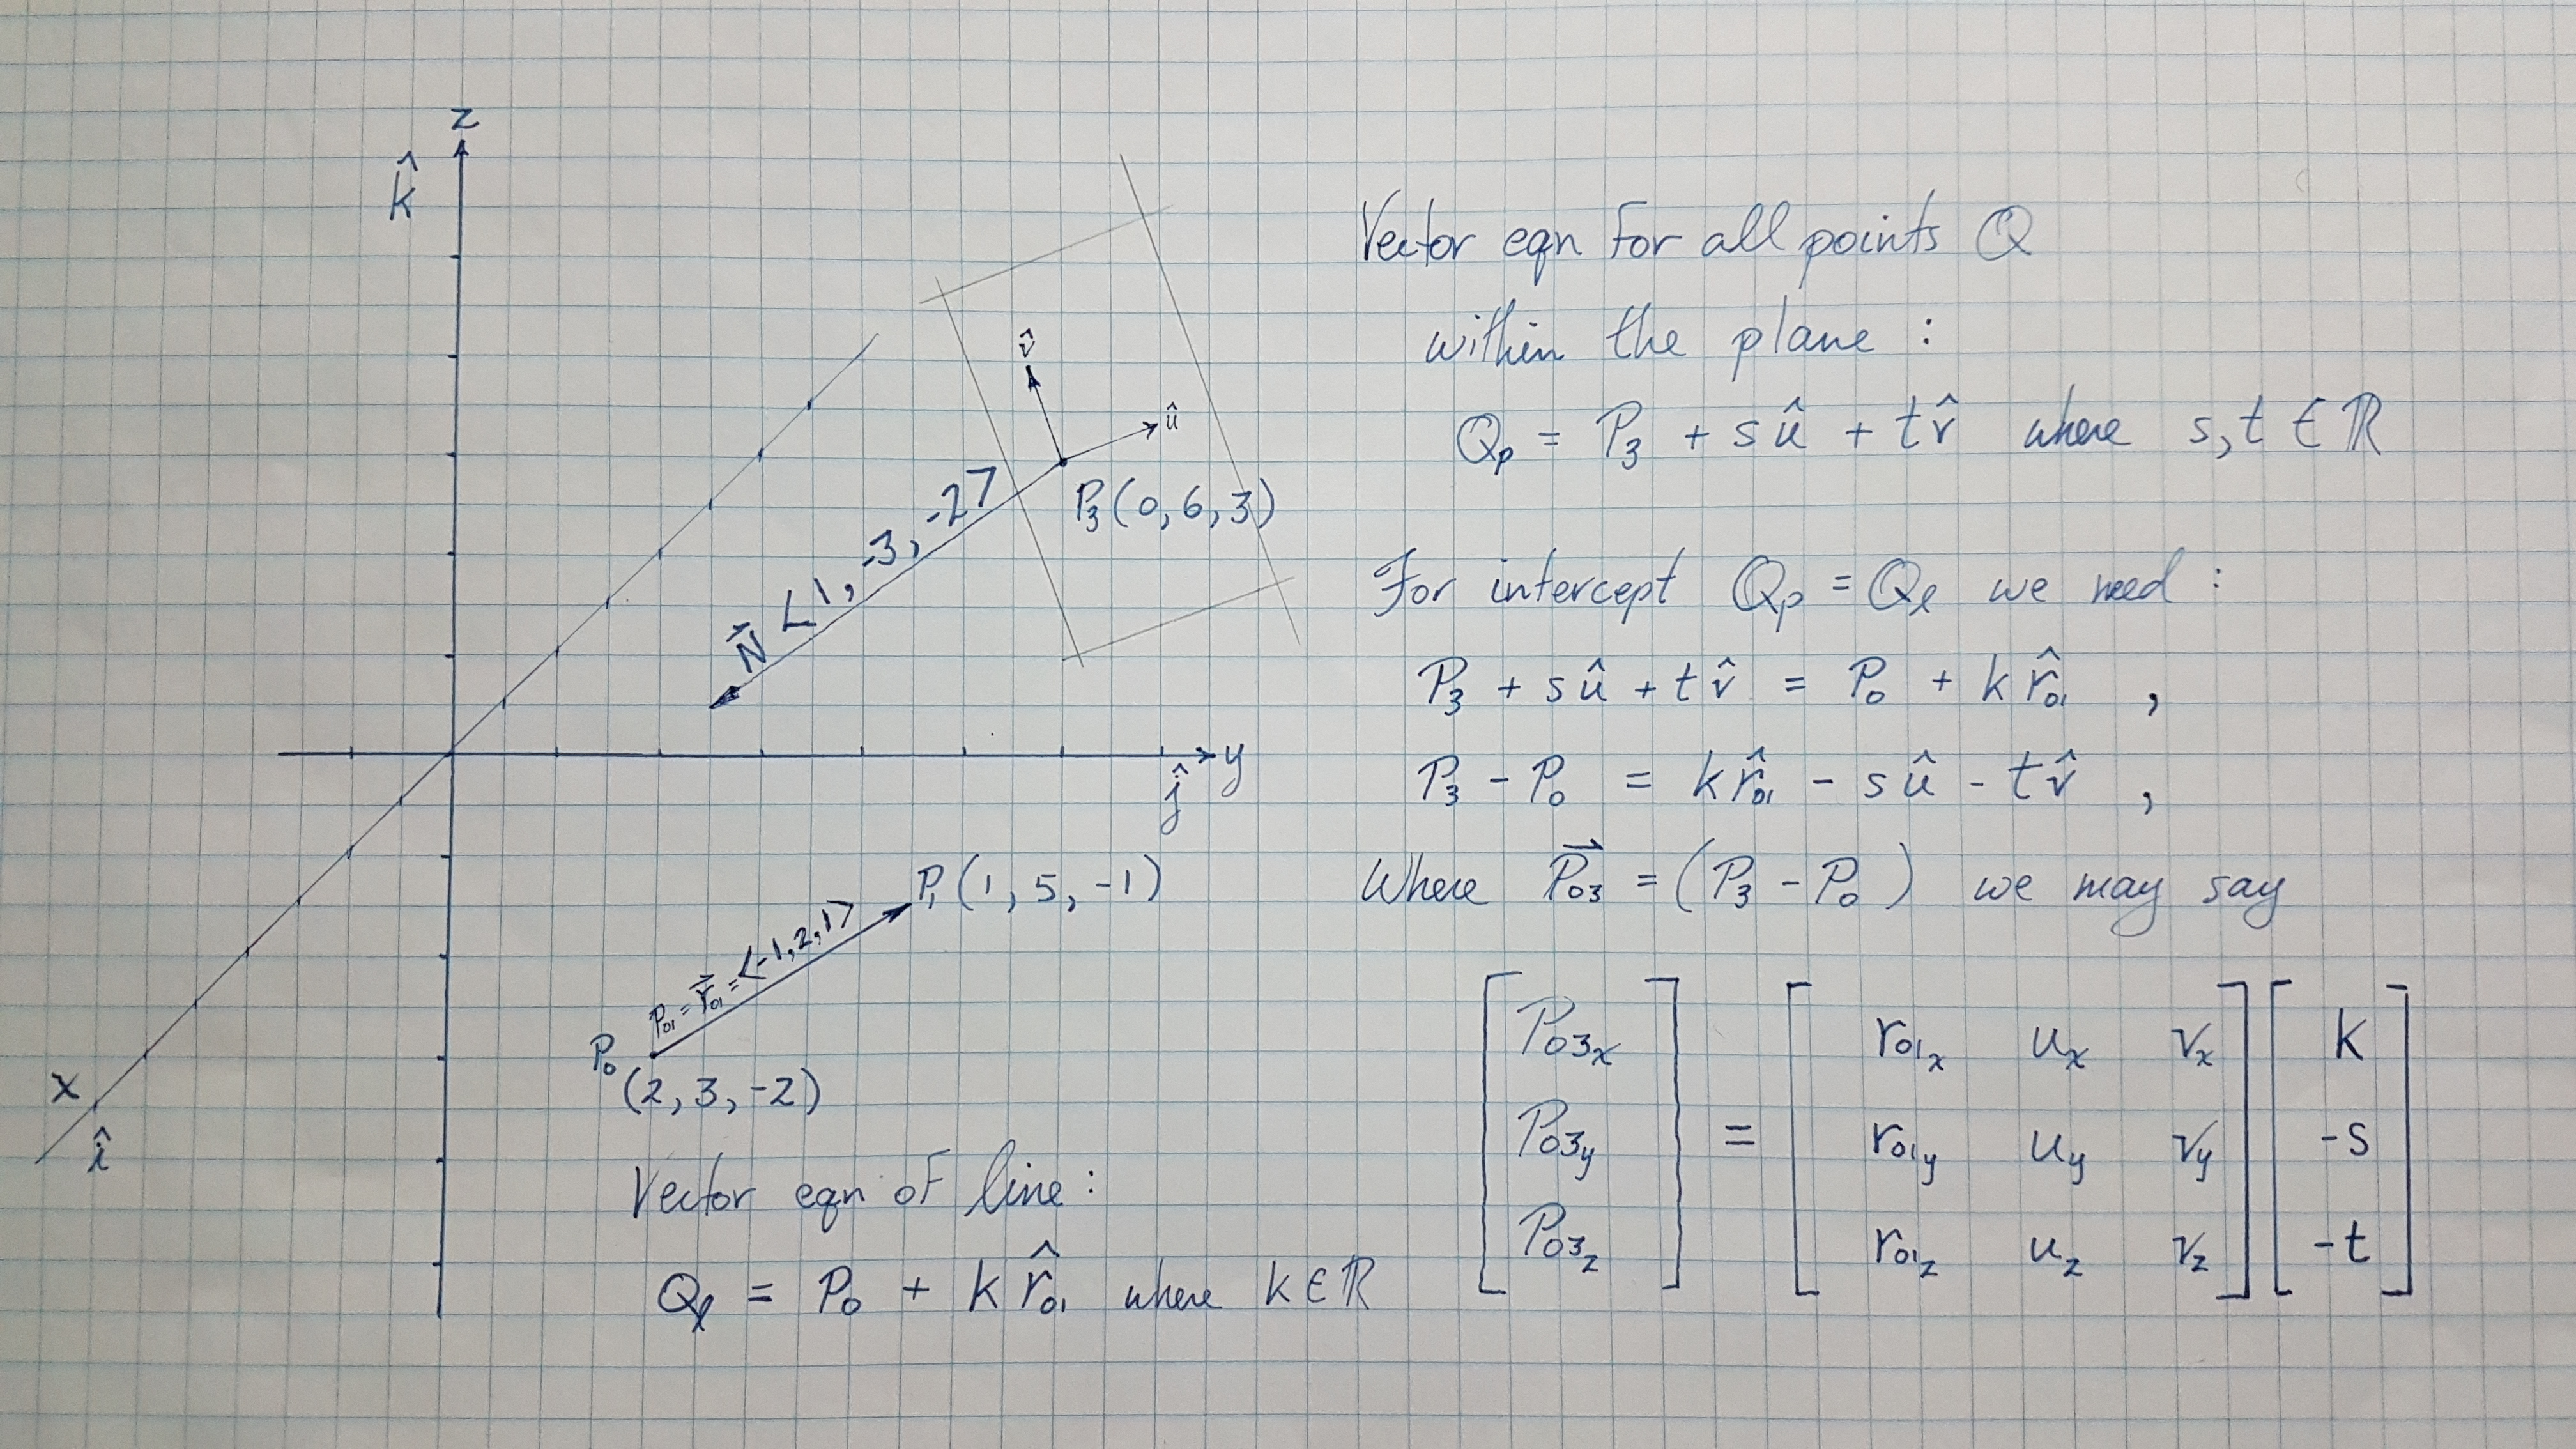 z
k̂
v̂
û
P₃(0,6,3)
N⃗ <1, -3, -2>
y
ĵ
P₁(1, 5, -1)
P₀₁ = r⃗₀₁ = <-1,2,1>
P₀
(2, 3, -2)
x
î
Vector eqn of line:
Qₗ = P₀ + k r̂₀₁ where k ∈ ℝ
Vector eqn for all points Q
within the plane :
Qₚ = P₃ + sû + tv̂ where s,t ∈ ℝ
For intercept Qₚ = Qₗ we need :
P₃ + sû + tv̂ = P₀ + k r̂₀₁ ,
P₃ - P₀ = k r̂₀₁ - sû - tv̂ ,
Where P⃗₀₃ = (P₃ - P₀) we may say
[P₀₃ₓ] [r₀₁ₓ uₓ vₓ] [k]
[P₀₃y] = [r₀₁y uy vy] [-s]
[P₀₃z] [r₀₁z uz vz] [-t]